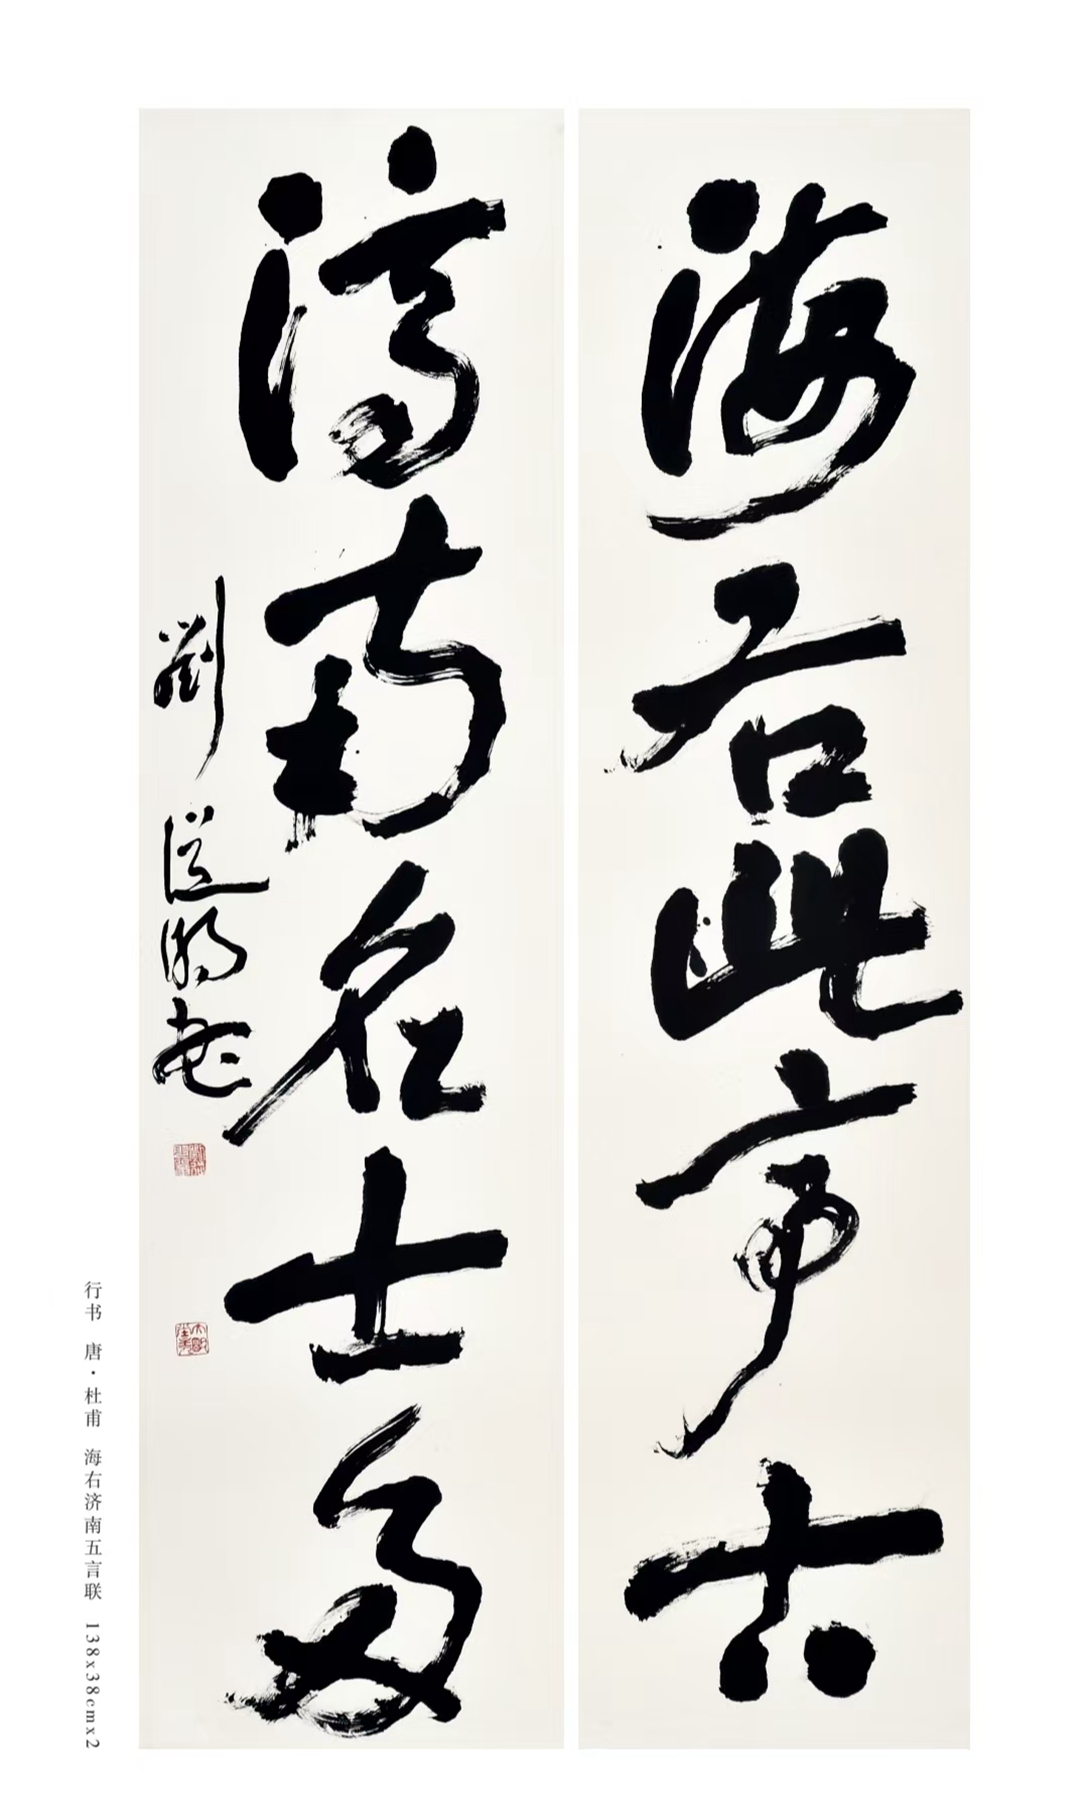 海右此亭古
濟南名士多
劉
书
行书 唐·杜甫 海右济南五言联 138x38cmx2